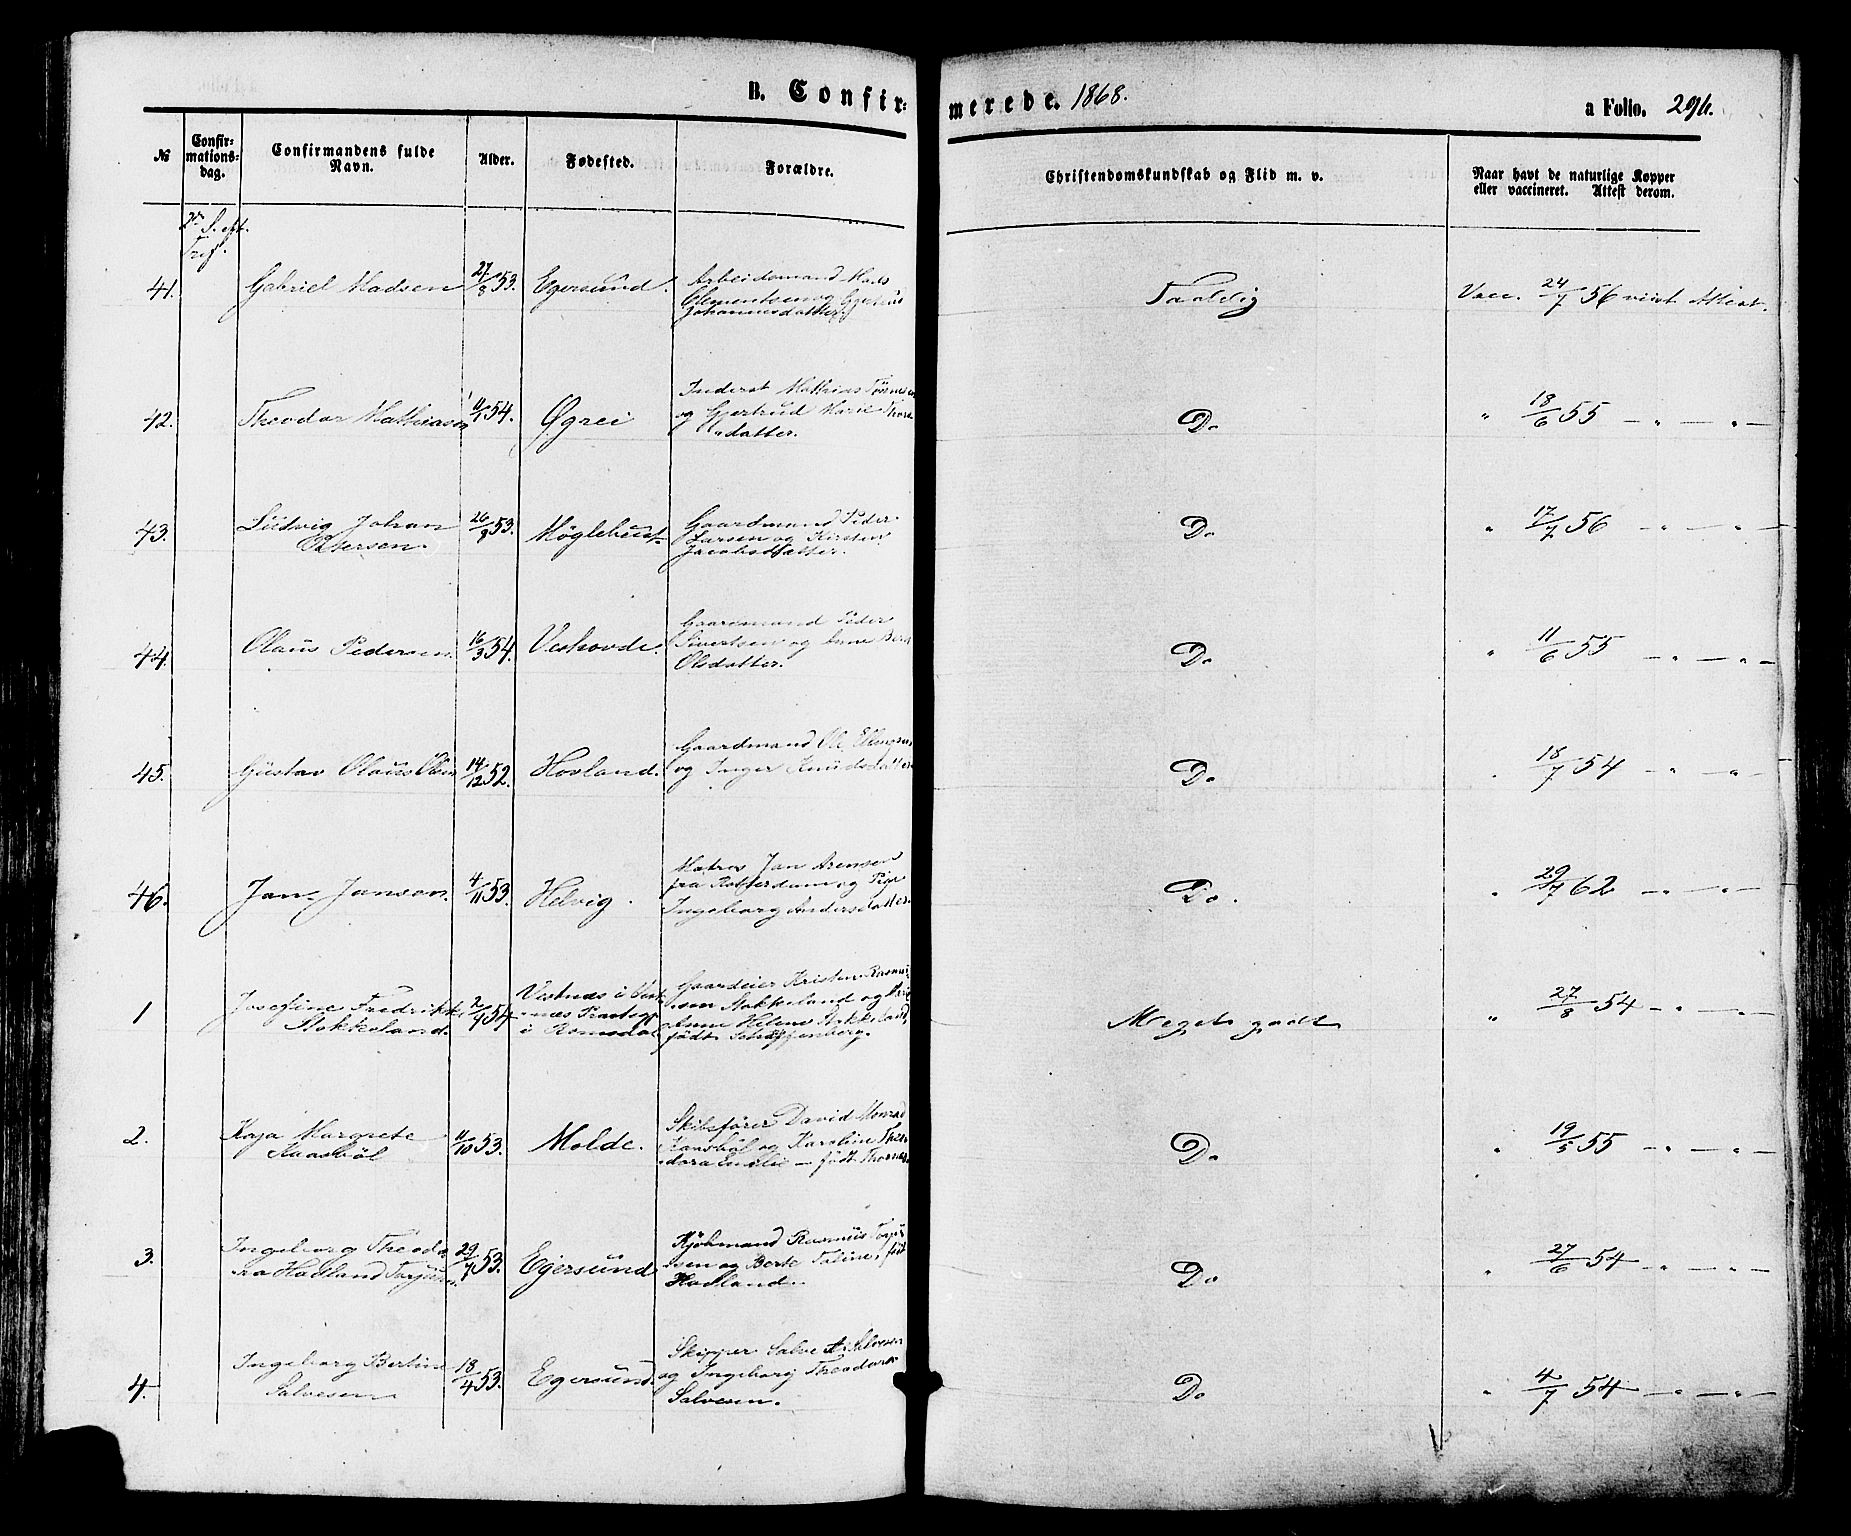 B. Confirmerede. 1868. a Folio. 296.
№ Confirmationsdag. Confirmandens fulde Navn. Alder. Fødested. Forældre. Christendomskundskab og Flid m. v. Naar havt de naturlige Kopper eller vaccineret. Attest derom.
41. Gabriel Madsen 27/8 53. Egersund. Arbeidsmand Mads
Clementsen og
Johannesdatter.
Taalelig Vacc. 24/7 56 viist Attest.
42. Theodor Mathiasen 11/1 54. Øgrei Inderst Mathias Tönnesen
og Gjertrud Marie
datter.
Do " 18/6 55 — " — " —
43. Ludvig Johan
Petersen. 26/8 53. Møglebust Gaardmand Peder
Larsen og Kirsten
Jacobsdatter.
Do " 17/7 56 — " — " —
44. Olaus Pedersen. 16/3 54. Veshovde. Gaardmand Peder
Sivertsen og Anne Berte
Olsdatter.
Do " 11/6 55 — " — " —
45. Gustav Olaus Olsen 14/12 52. Hovland. Gaardmand Ole Ellingsen
og Inger Knudsdatter
Do " 18/7 54 — " — " —
46. Jan Janson 4/11 53. Helvig. Matros Jan Arensen
fra Rotterdam og Pige
Ingeborg Andersdatter.
Do. " 29/7 62 — " — " —
1 Josefine Fredrikke
Stokkeland. 2/4 54 Vestnæs i Vest-
næs Præstegj
i Romsdal Gaardeier Kristen Rasmus-
sen Stokkeland og
Anne Helene Stokkeland
födt
Meget godt " 27/8 54 — " — " —
2. Kaja Margrete
Kaasböl 11/10 53. Molde. Skibsförer David Monrad
Kaasböl og Karoline Theo-
dora Emilie — födt
Do " 19/5 55 — " — " —
3. Ingeborg Theodo-
ra Hadland Torjusen. 29/7 53. Egersund Kjöbmand Rasmus Torju-
sen og Berte Taline, födt
Hadland.
Do " 27/6 54 — " — " —
4. Ingeborg Bertine
Salvesen 18/4 53. Egersund. Skipper Salve A. Salvesen
og Ingeborg Theodora
Salvesen.
Do " 4/7 54 — " — " —